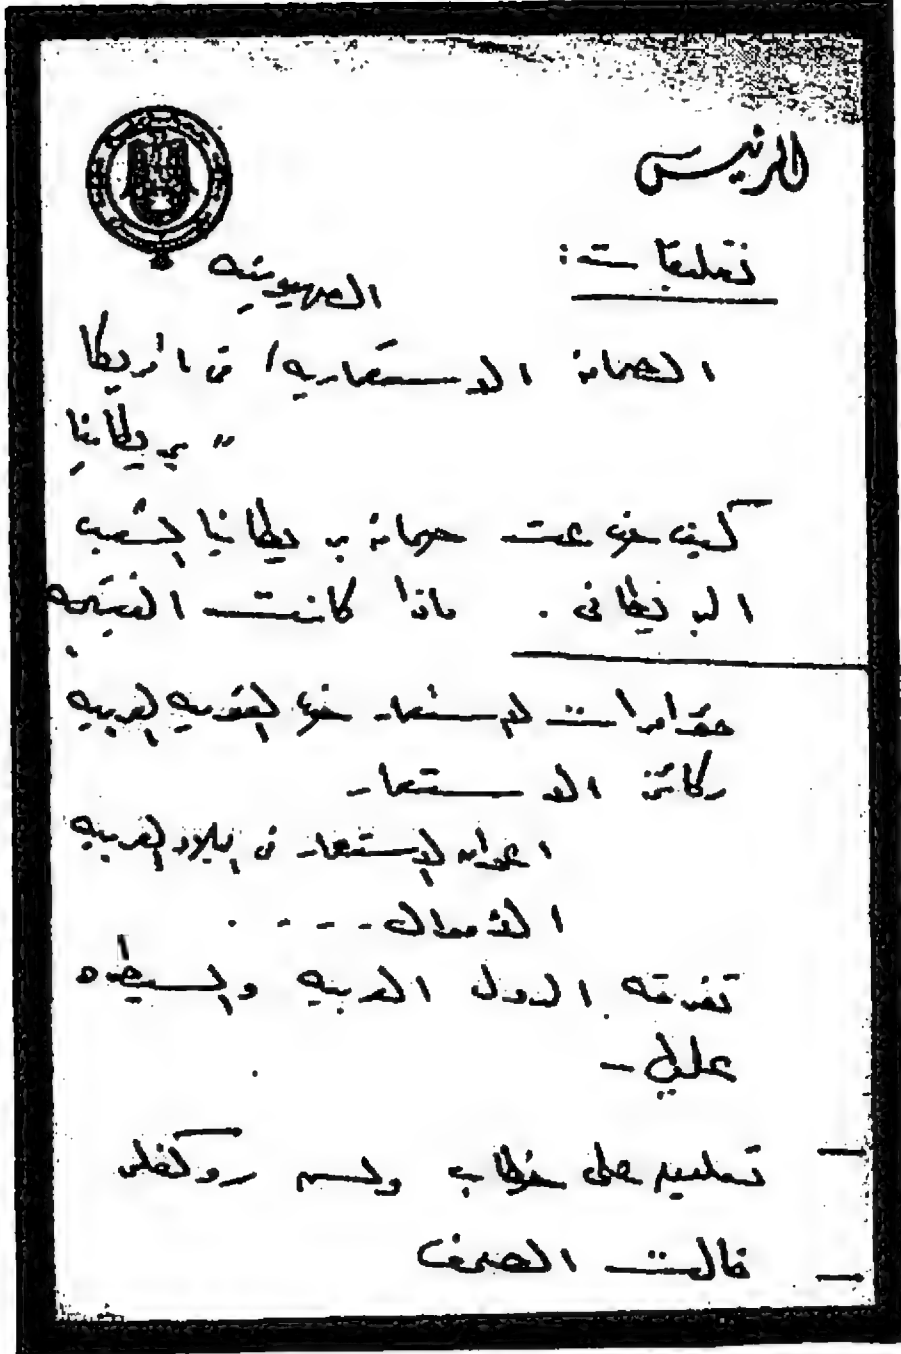 الرئيس
تعليقات:
الصهيونيه
الصحافة الاستعماريه / في امريكا
" بريطانيا
كيف خدعت صحافة بريطانيا الشعب
البريطاني . ماذا كانت النتيجه
مؤامرات الاستعمار ضد القوميه العربيه
ركائز الاستعمار
اعوان الاستعمار في البلاد العربيه
الاموال - - - .
تفرقه الدول العربيه والسيطره
عليها -
— تعليق على خطاب ولسم روكفلر
— قالت الصحف